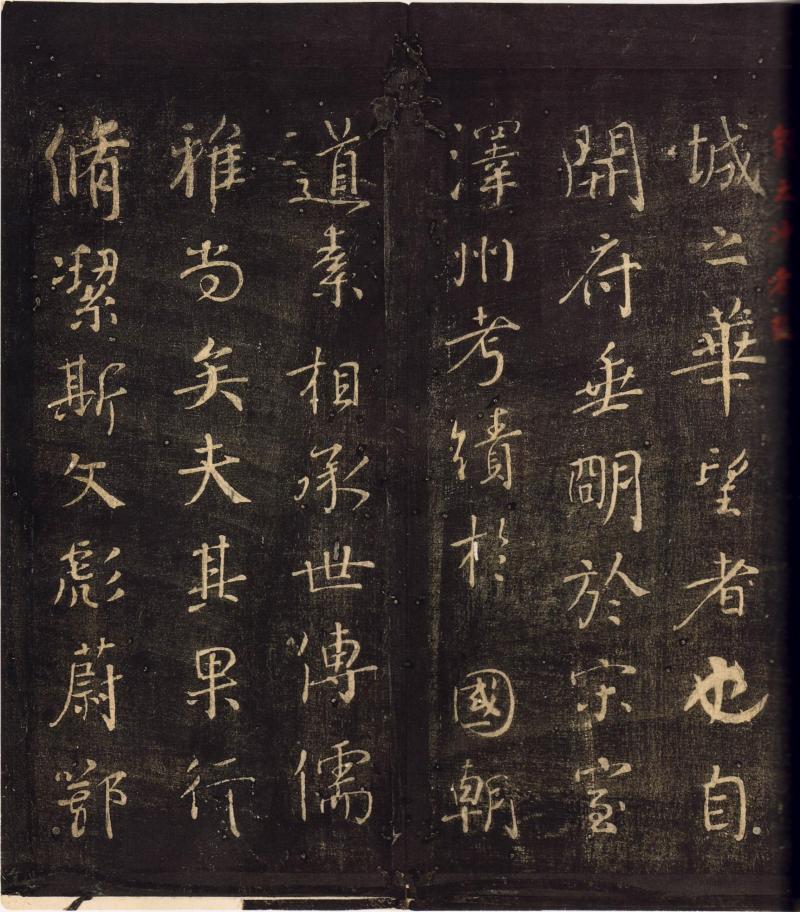 城之華望者也自
開府垂明於宋室
澤州考績於國朝
道素相承世傳儒
雅尚矣夫其果行
脩潔斯文彪蔚鄂